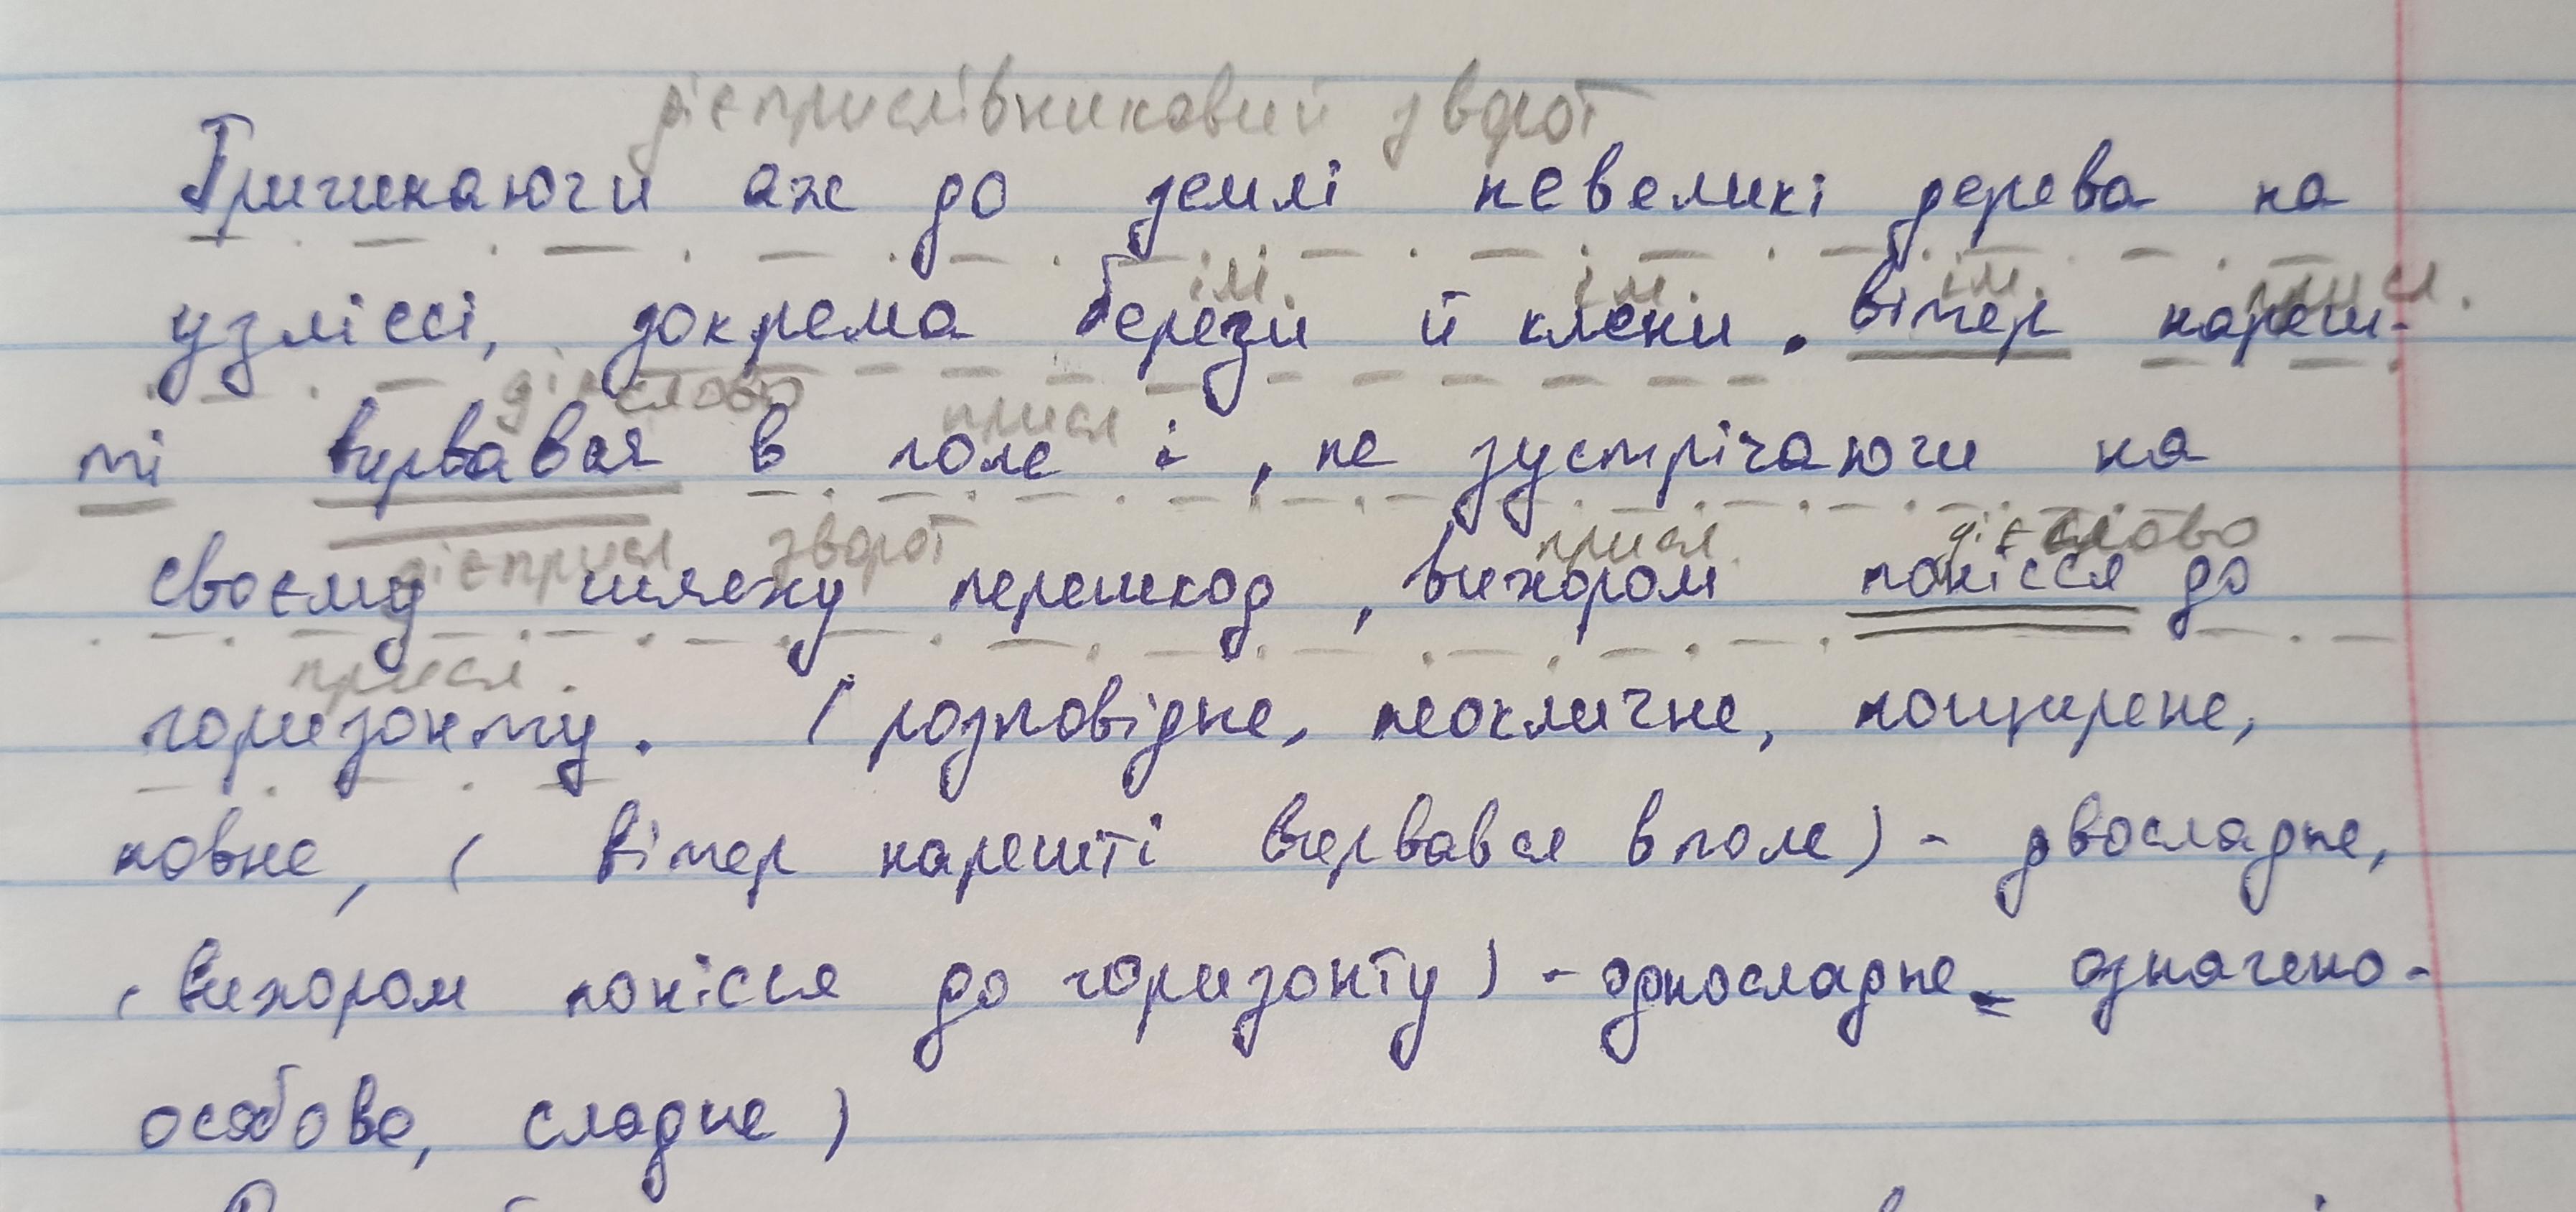 дієприслівниковий зворот
Пригинаючи аж до землі невеликі дерева на
ім. ім. ім. присл.
узліссі, зокрема берези й клени, вітер нареш-
дієслово присл
ті вирвався в поле і, не зустрічаючи на
дієприсл зворот присл. дієслово
своєму шляху перешкод, вихором понісся до
присл.
горизонту. (розповідне, неокличне, поширене,
повне, (вітер нарешті вирвався в поле) - двоскладне,
(вихором понісся до горизонту) - односкладне - означено-
особове, складне)